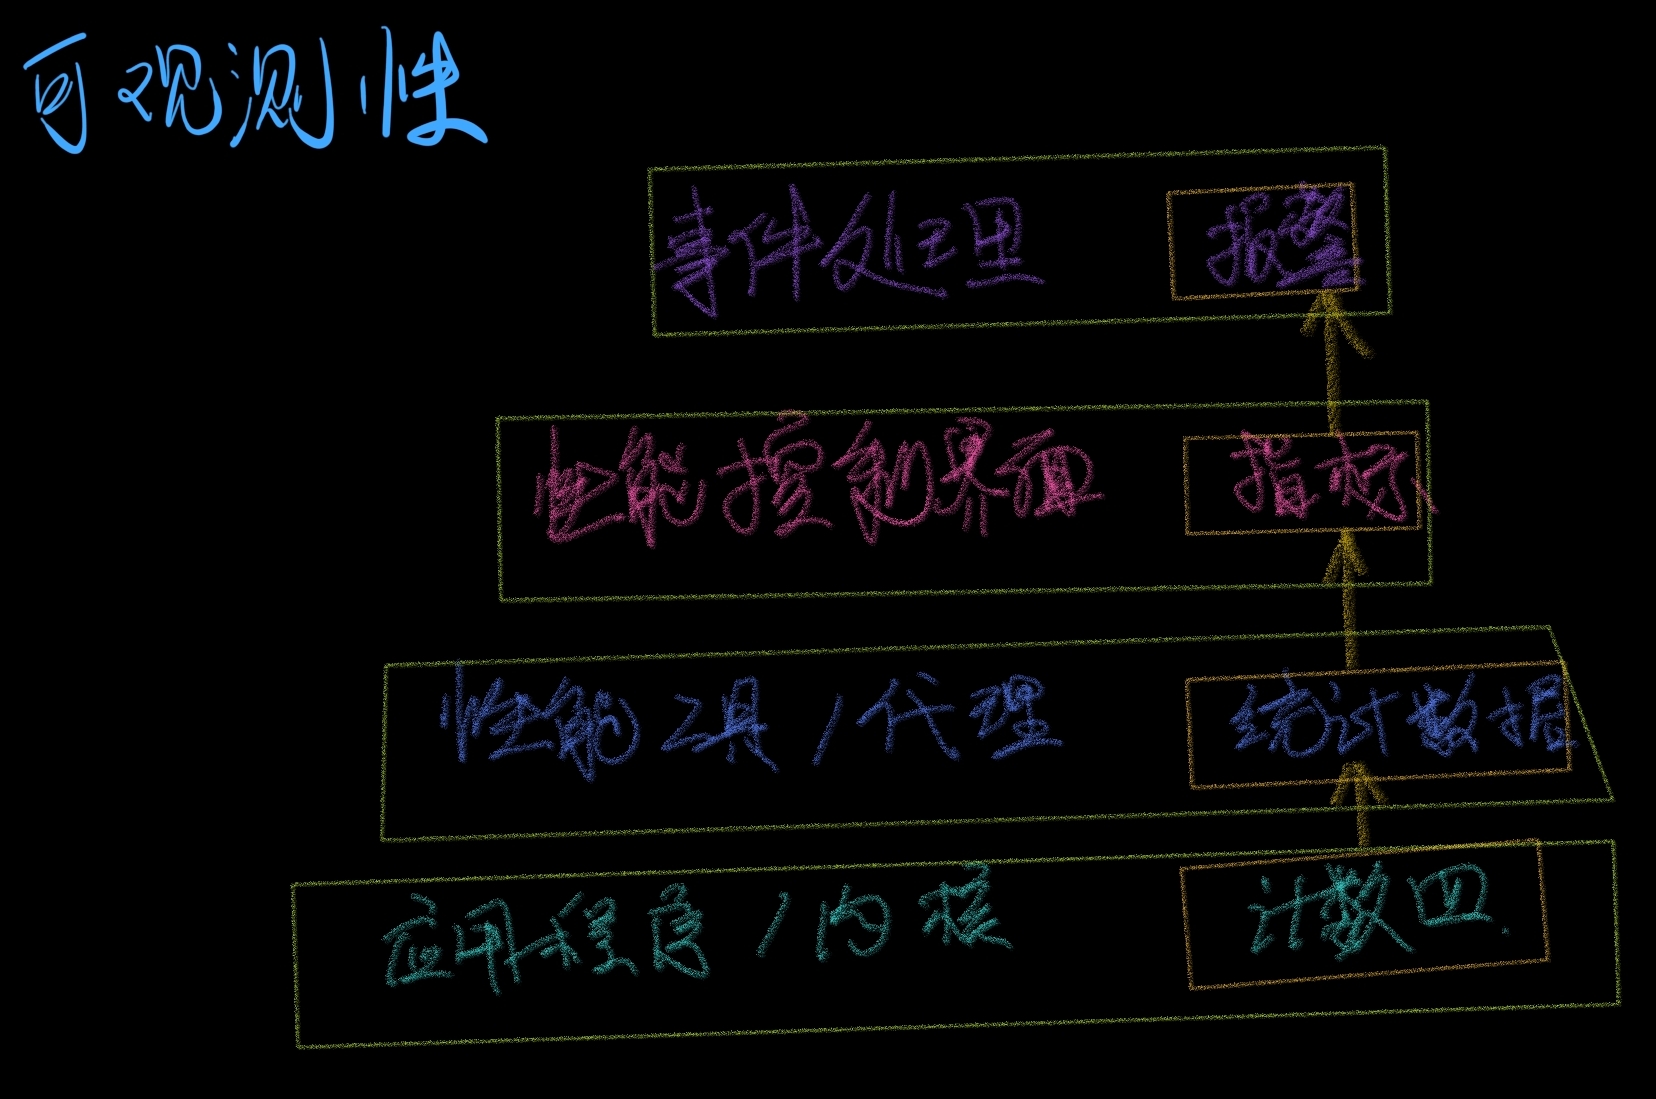 可观测性
事件处理 报警
性能控制界面 指标
性能工具/代理 统计数据
应用程序/内核 计数